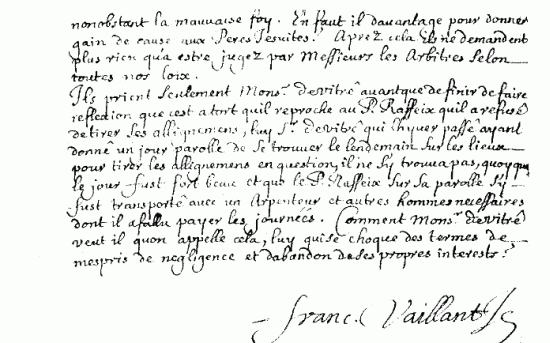 nonobstant la mauvaise foy. En faut il davantage pour donner
gain de cause aux Peres Jesuites? Aprez cela ils ne demandent
plus rien qu'a estre jugez par Messieurs les Arbitres selon
toutes nos loix.
Ils prient seulement Monsr. deVitré avant que de finir de faire
reflexion que cest a tort quil reproche au P. Raffeix quil a refusé
de tirer ses allignemens, luy Sr. deVitré qui lhyver passé ayant
donné un jour parolle de se trouver le lendemain sur les lieux
pour tirer les allignemens en question, il ne sy trouva pas, quoyque
le jour fust fort beau et que le P. Raffeix sur sa parolle sy
fust transporté avec un Arpenteur et autres hommes necessaires
dont il a fallu payer les journées. Comment Monsr. deVitré
veut il quon appelle cela, luy qui se choque des termes de
mespris de negligence et dabandon de ses propres interests?
franc. Vaillant